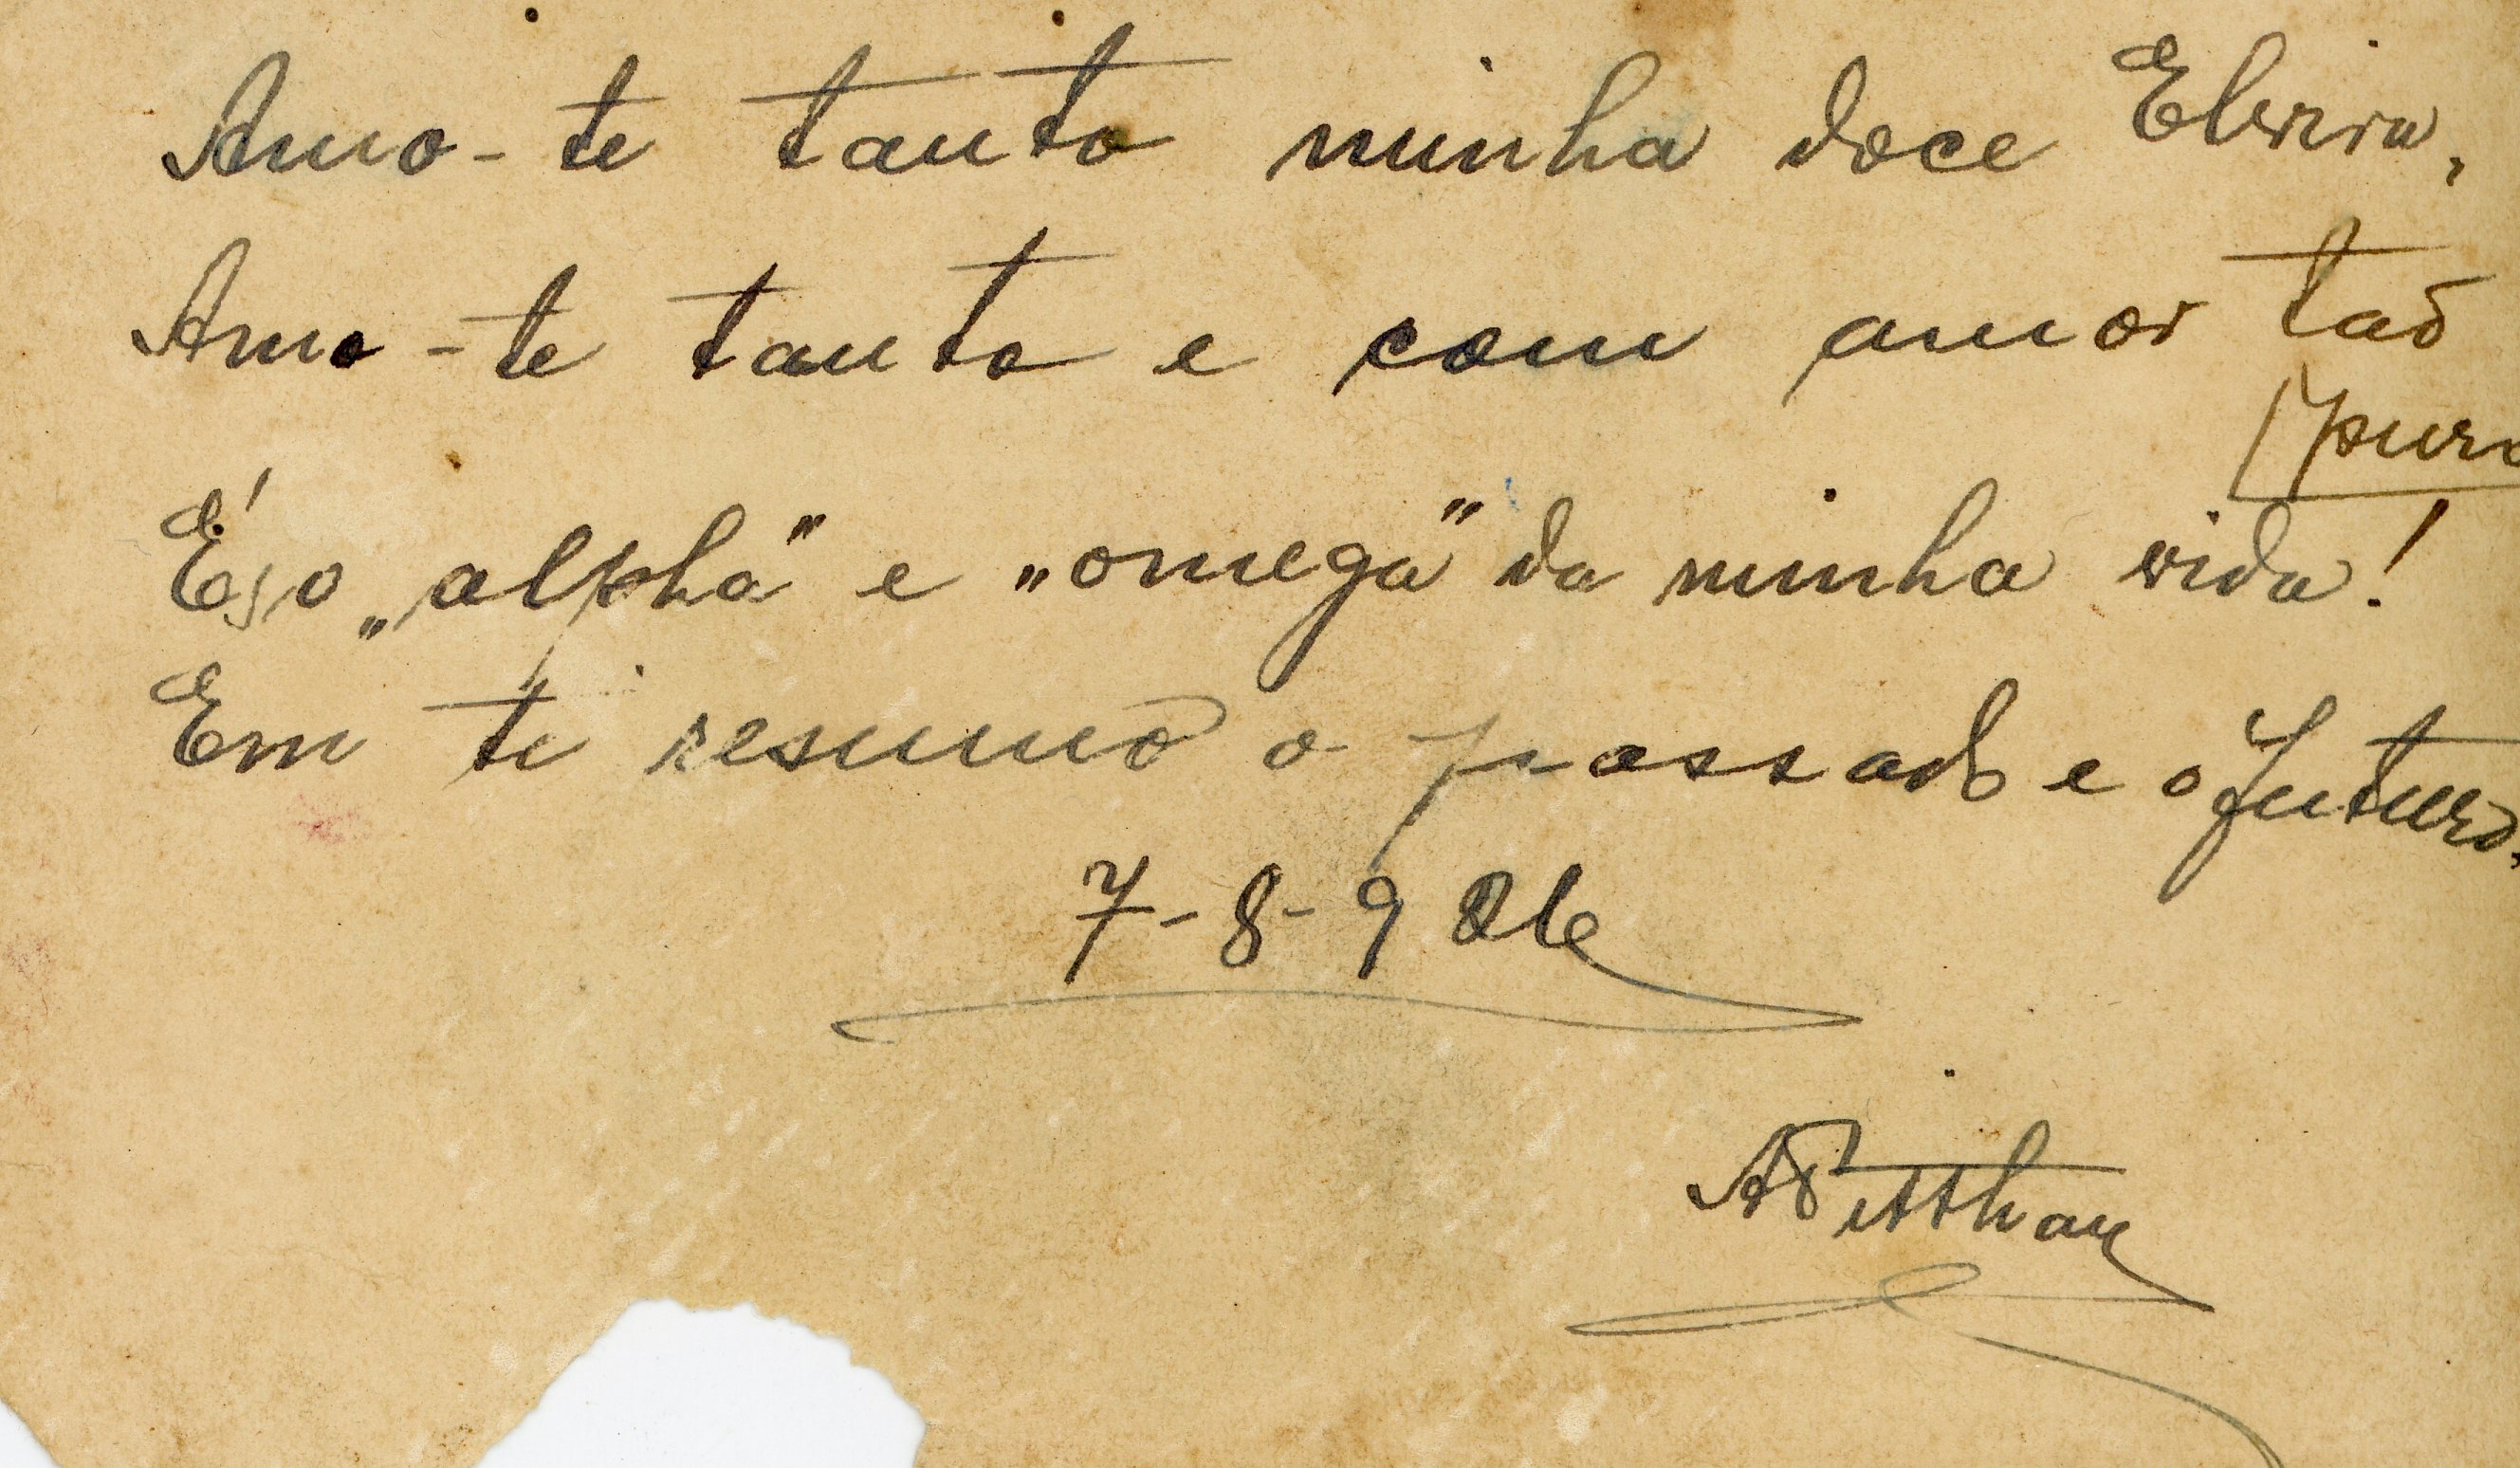 Amo-te tanto minha doce Elvira,
Amo-te tanto e com amor taõ
[puro
És o „alpha" e „omega" da minha vida!
Em ti resumo o passado e o futuro.
7-8-926
APitthan